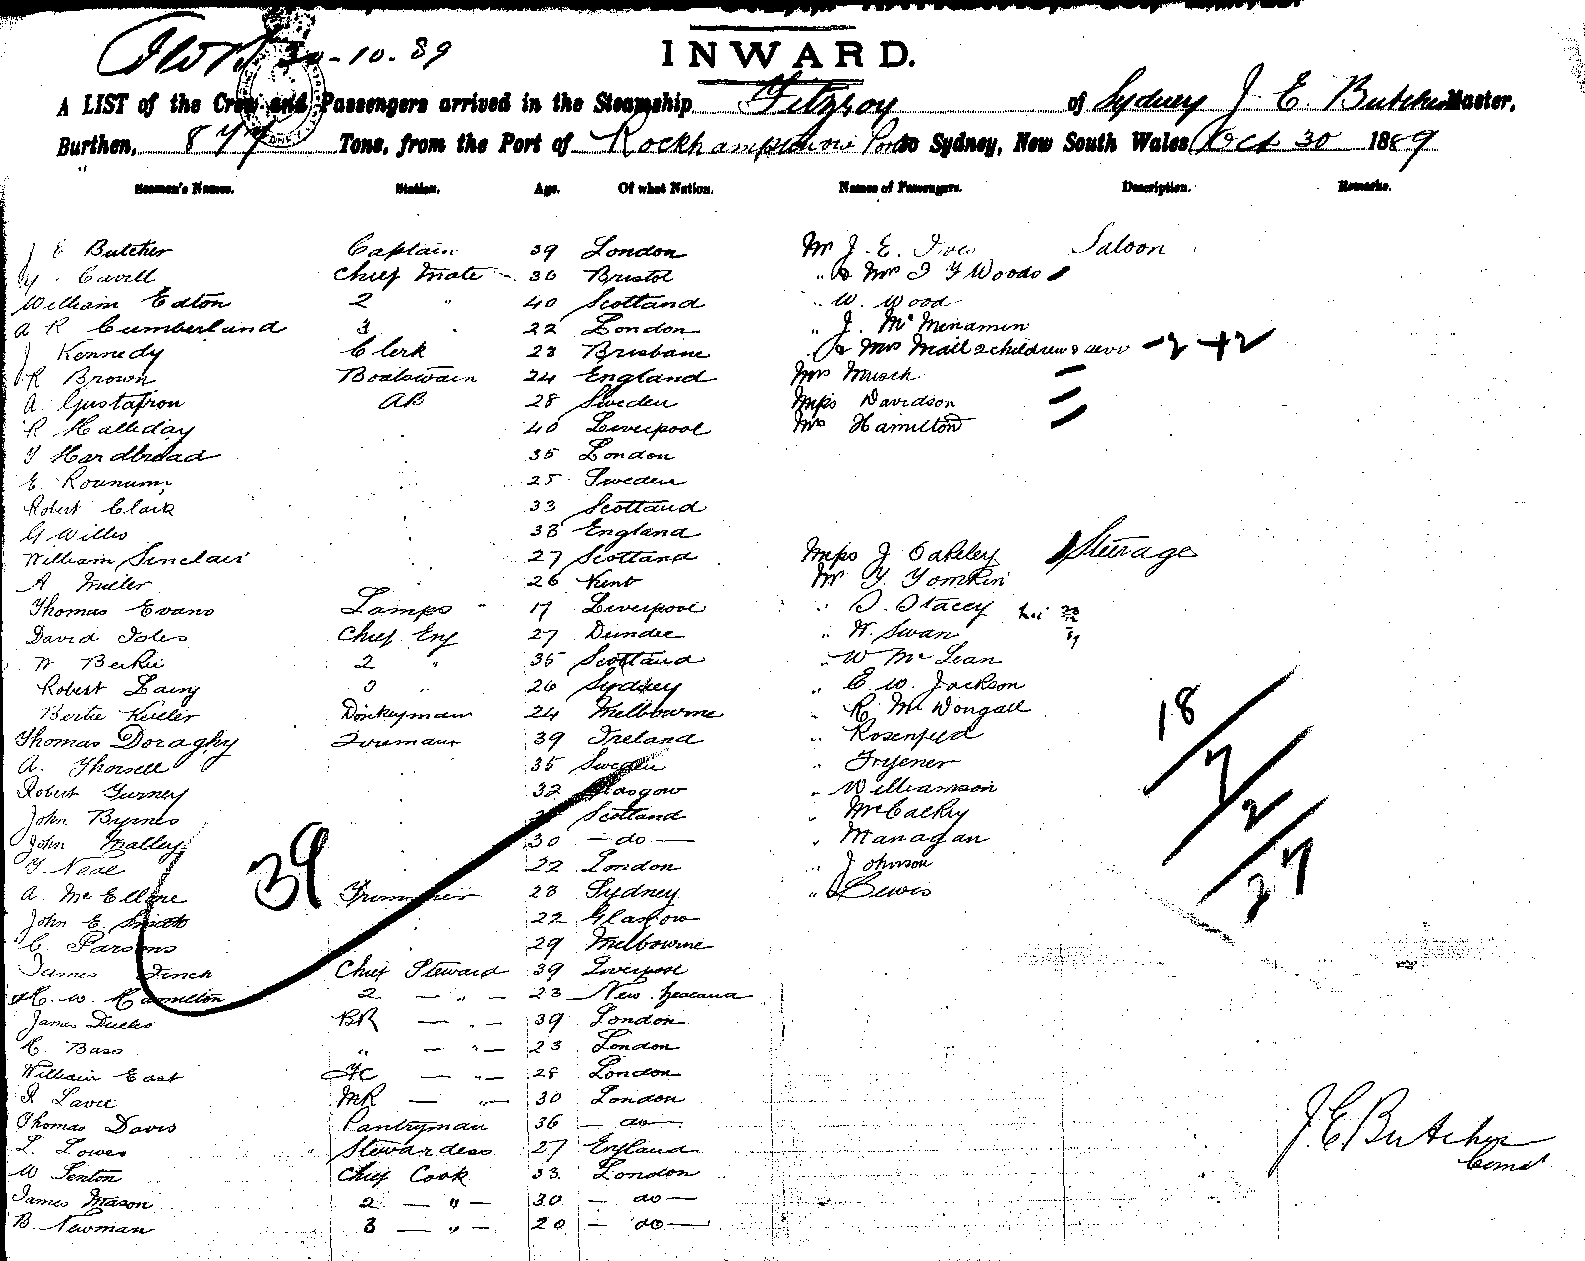 30-10-89
INWARD.
A LIST of the Crew and Passengers arrived in the Steamship Fitzroy of Sydney J. E. Butcher Master,
Burthen, 877 Tons, from the Port of Rockhampton to Sydney, New South Wales Oct 30 1889
Seamen's Names. Station. Age. Of what Nation. Names of Passengers. Description. Remarks.
J E Butcher Captain 39 London Mr J. E. Ives Saloon
Cavell Chief Mate 36 Bristol " & Mrs Woods
William Eaton 2 " 40 Scotland " W. Wood
A R Cumberland 3 " 22 London " J. McMenamin
J Kennedy Clerk 23 Brisbane & Mrs Mall 2 children & serv -2 +2
R Brown Boatswain 24 England Mrs Musch
A. Gustafson AB 28 Sweden Miss Davidson
R Halliday 40 Liverpool Mrs Hamilton
Hardbread 35 London
E. 25 Sweden
Robert Clark 33 Scotland
G Willis 38 England
William Sinclair 27 Scotland Miss J Oakeley Steerage
A Miller 26 Kent Mr Tomkin
Thomas Evans Lamps " 17 Liverpool " Stacey
David Isles Chief Eng 27 Dundee " Swan
2 " 35 Scotland " W McLean
Robert Laing 3 " 26 Sydney " E. W. Jackson
Bertie Keeler Donkeyman 24 Melbourne " R McDongall
Thomas Doraghy Foreman 39 Ireland " Rosenfeld
A. Thorsell 35 Sweden " Fryener
Robert Gurney 32 Glasgow " Williamson
John Byrnes Scotland " McCackey
John Malley 30 — do — " Managan
Neal 22 London " Johnson
A. McEllone Trimmer 23 Sydney " Lewis
John E Smith 22 Glasgow
C. Parsons 29 Melbourne
39
18
7
2
27
James Finch Chief Steward 39 Liverpool
H. W. Hamilton 2 — " — 23 New Zealand
James Ducks BR — " — 39 London
Bass " — " — 23 London
William East FC — " — 28 London
Lavee MR — " — 30 London
Thomas Davis Pantryman 36 — do —
L. Lowes Stewardess 27 England
W Senton Chief Cook 33 London
James Mason 2 — " — 30 — do —
B. Newman 3 — " — 20 — do —
J. E. Butcher